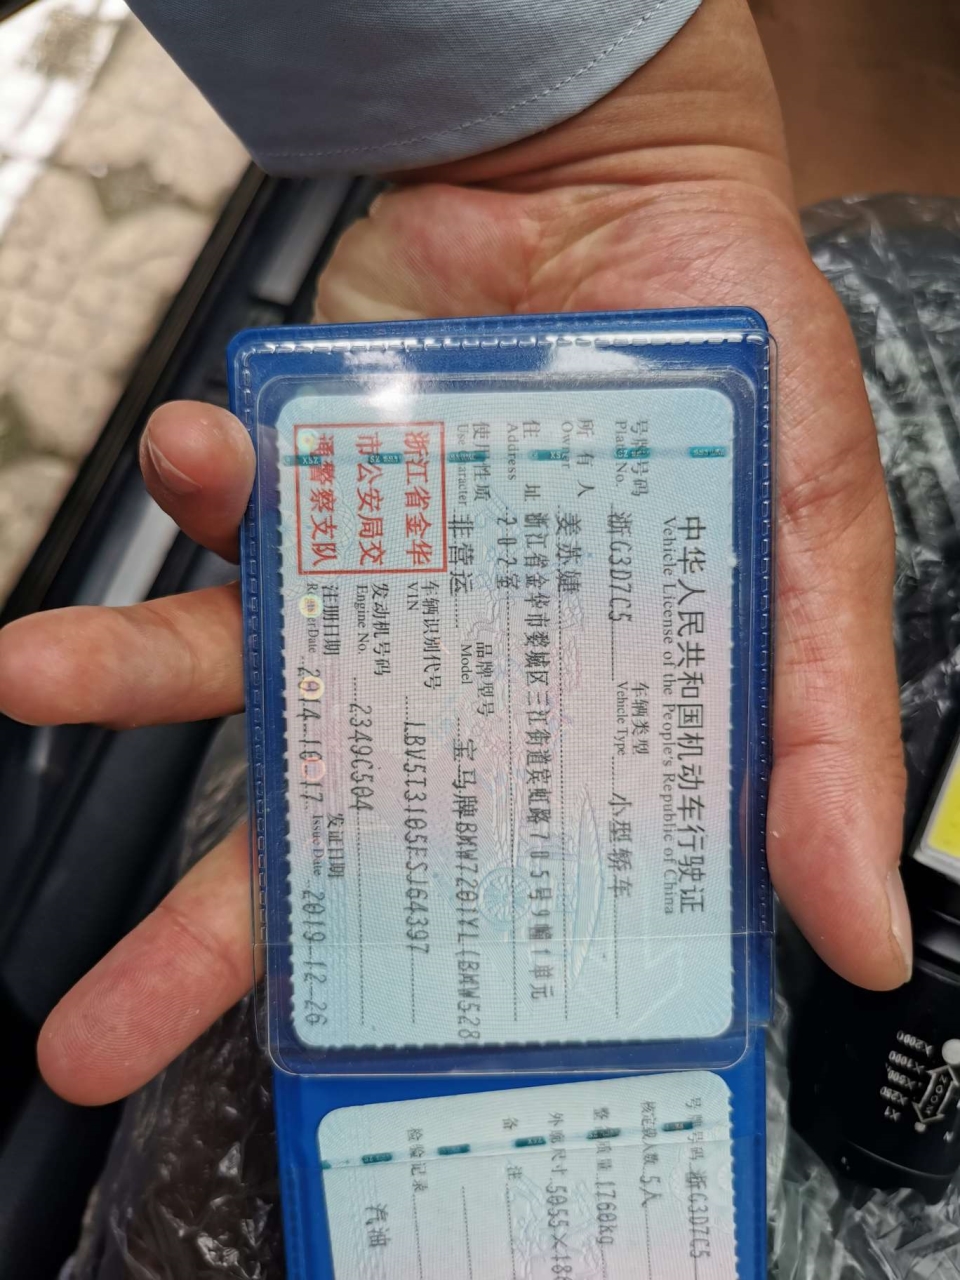 中华人民共和国机动车行驶证
Vehicle License of the People's Republic of China
号牌号码 浙G3D7C5 车辆类型 小型轿车
Plate No. Vehicle Type
所有人 姜苏婕
Owner
住址 浙江省金华市婺城区三江街道宾虹路785号9幢1单元
Address 202室
使用性质 非营运 品牌型号 宝马牌BMW7201YL(BMW528
Use Character Model
浙江省金华
市公安局交
通警察支队
车辆识别代号 LBV5T3105FSJ64397
VIN
发动机号码 2349C504
Engine No.
注册日期 2014-10-17 发证日期 2019-12-26
Register Date Issue Date
号牌号码 浙G3D7C5
核定载人数 5人
整备质量 1760kg
外廓尺寸 5055×186
备注
检验记录
汽油
X2000
X1000
X500
X250
X1